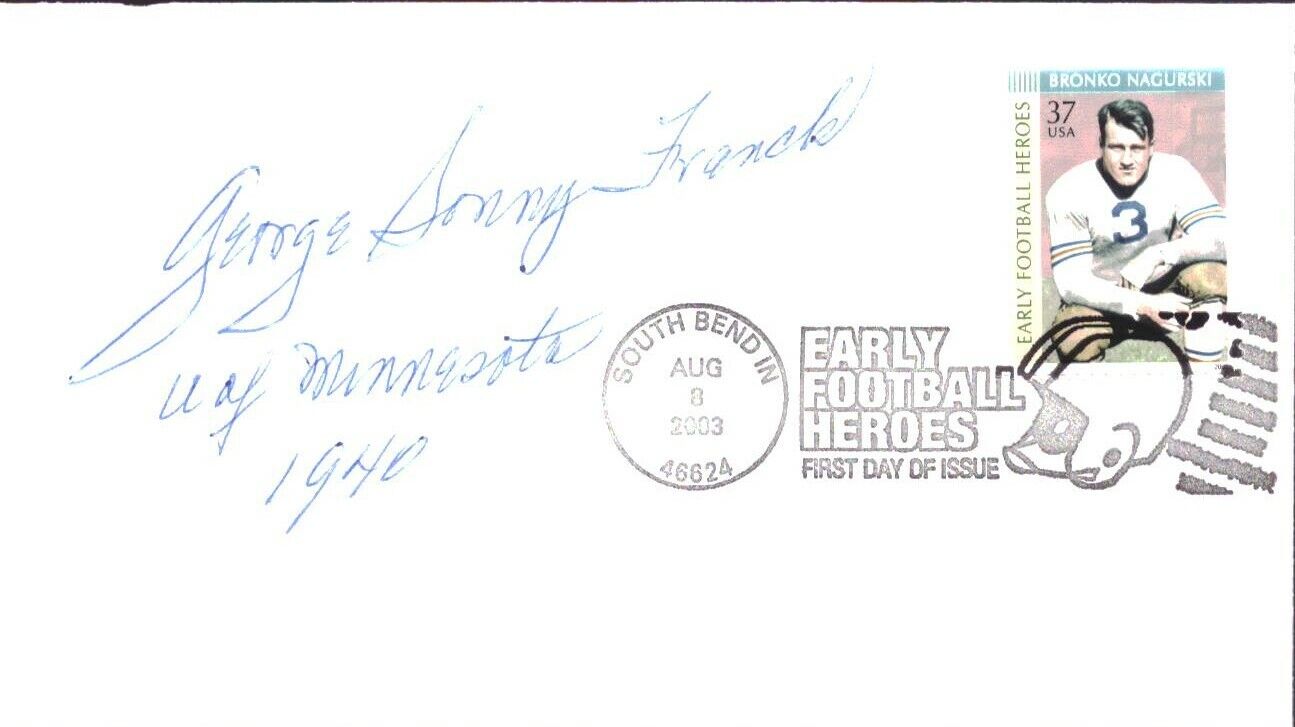 George Sonny Franck
U of Minnesota
1940
BRONKO NAGURSKI
37
USA
EARLY FOOTBALL HEROES
3
SOUTH BEND IN
AUG
8
2003
46624
EARLY
FOOTBALL
HEROES
FIRST DAY OF ISSUE